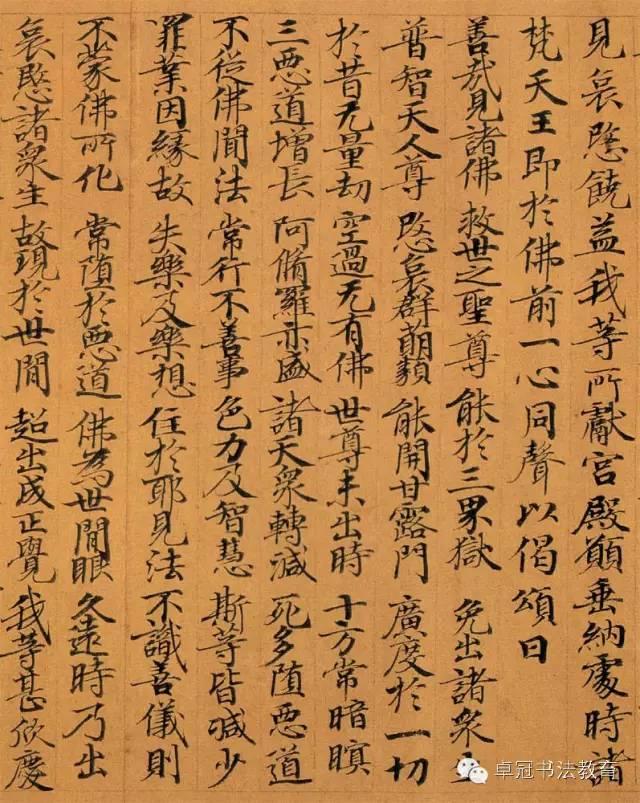 見哀愍饒益我等所獻宮殿願垂納處時諸
梵天王即於佛前一心同聲以偈頌曰
善哉見諸佛 救世之聖尊 能於三界獄 免出諸衆生
普智天人尊 愍哀群萌類 能開甘露門 廣度於一切
於昔无量劫 空過无有佛 世尊未出時 十方常暗瞑
三惡道增長 阿脩羅亦盛 諸天衆轉減 死多墮惡道
不從佛聞法 常行不善事 色力及智慧 斯等皆減少
罪業因緣故 失樂及樂想 住於耶見法 不識善儀則
不蒙佛所化 常墮於惡道 佛為世間眼 久遠時乃出
哀愍諸衆生 故現於世間 超出成正覺 我等甚欣慶
卓冠书法教育